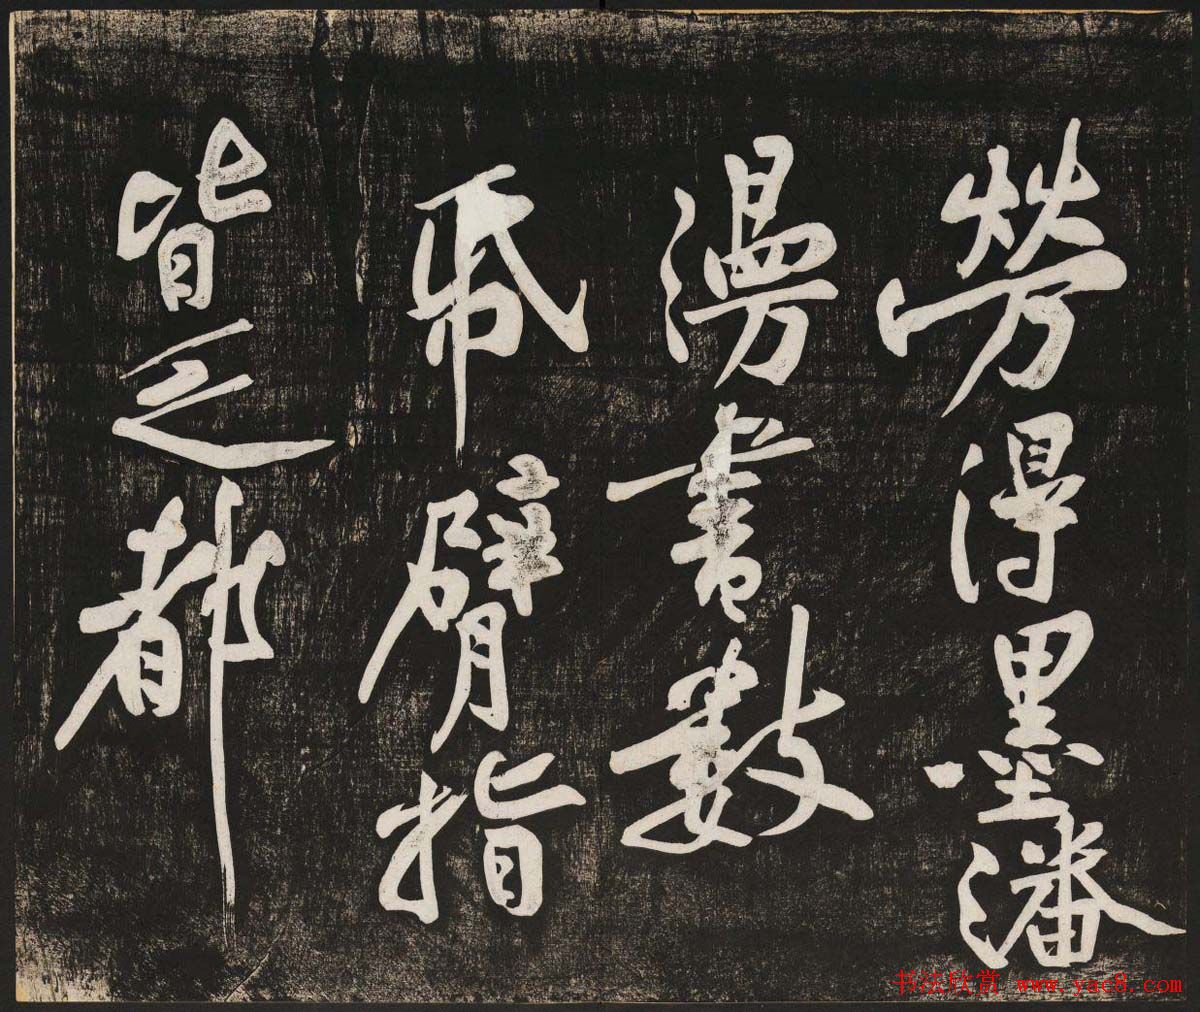 勞得墨潘
漫書數
帋臂指
皆乏都
书法欣赏 www.yac8.com